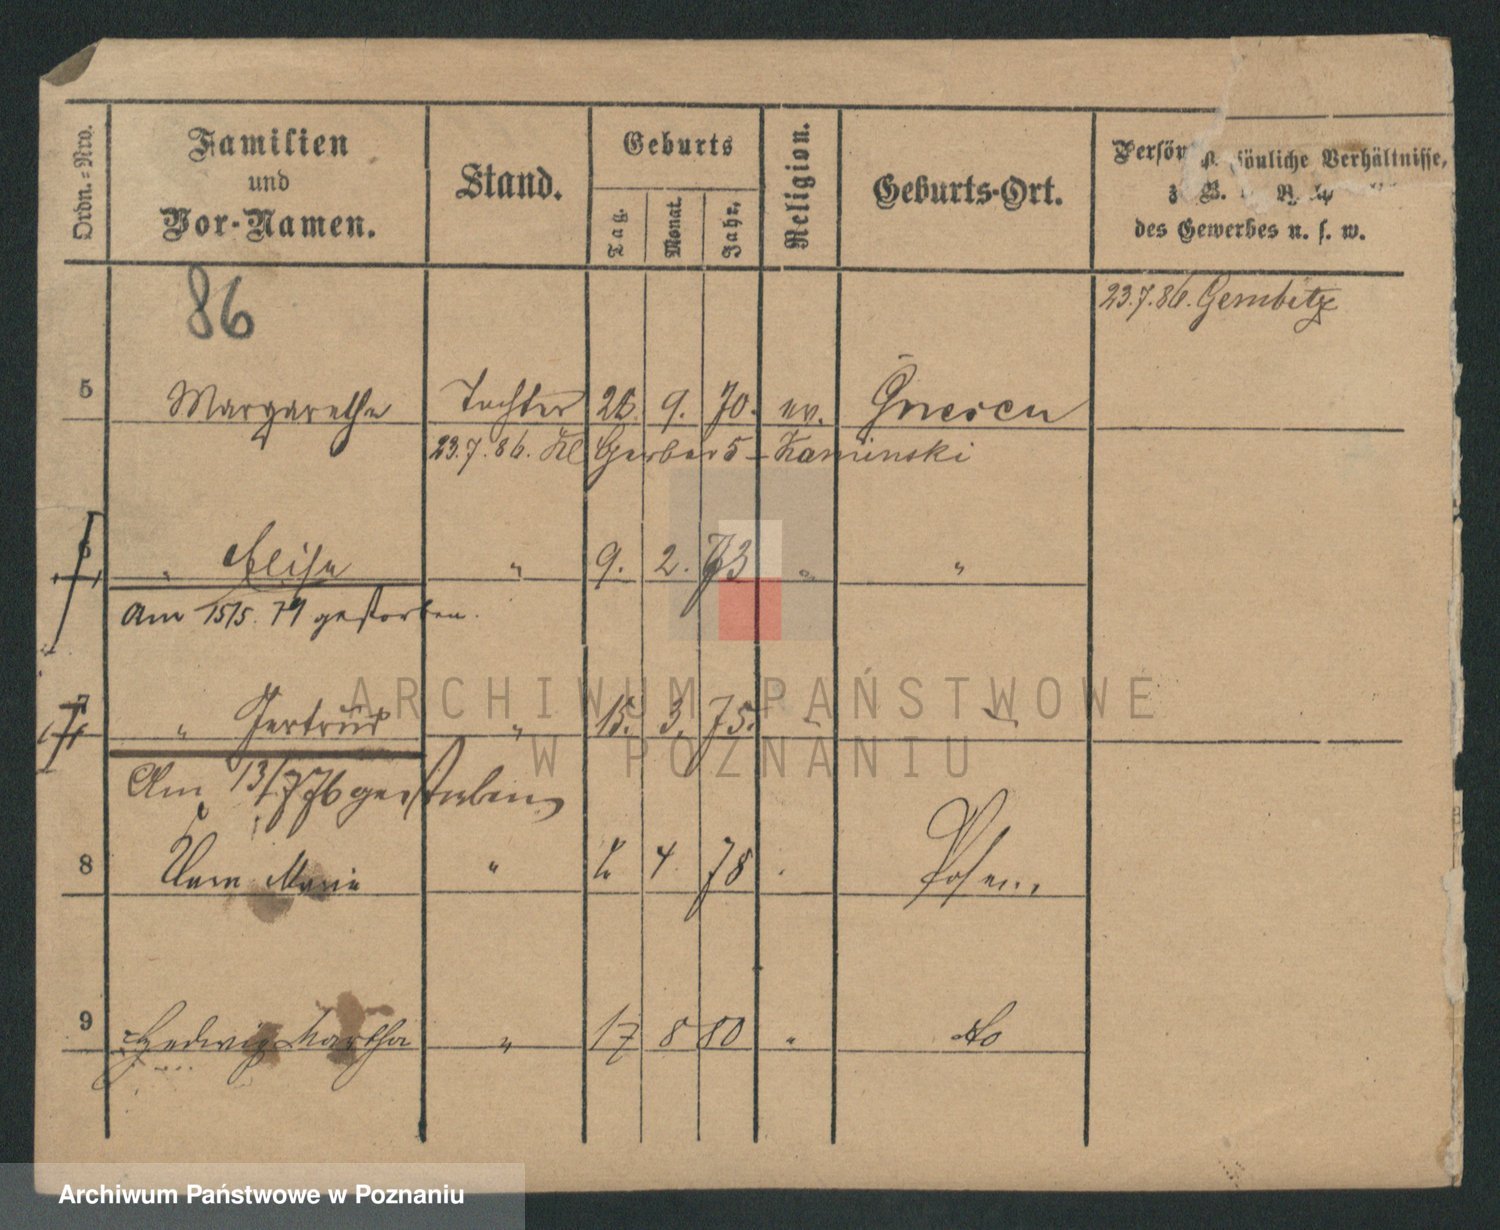 Ordn.=Nro.
Familien
und
Vor-Namen.
Stand.
Geburts
Tag.
Monat.
Jahr.
Religion.
Geburts-Ort.
Persönliche Verhältnisse,
z. B.
des Gewerbes u. s. w.
86
23.7.86. Gembitz
5 Margarethe Tochter 26. 9. 70. ev. Gnesen
23.7.86. Kl Gerberst Kaminski
6 " Elise " 9. 2. 73 " "
Am 15/5. 79 gestorben.
7 " Gertrud " 15. 3. 75. " "
Am 13/7 76 gestorben
8 Marie " 4. 78 Posen
9 Hedwig Martha " 17 8 80 " do
ARCHIWUM PAŃSTWOWE
W POZNANIU
Archiwum Państwowe w Poznaniu